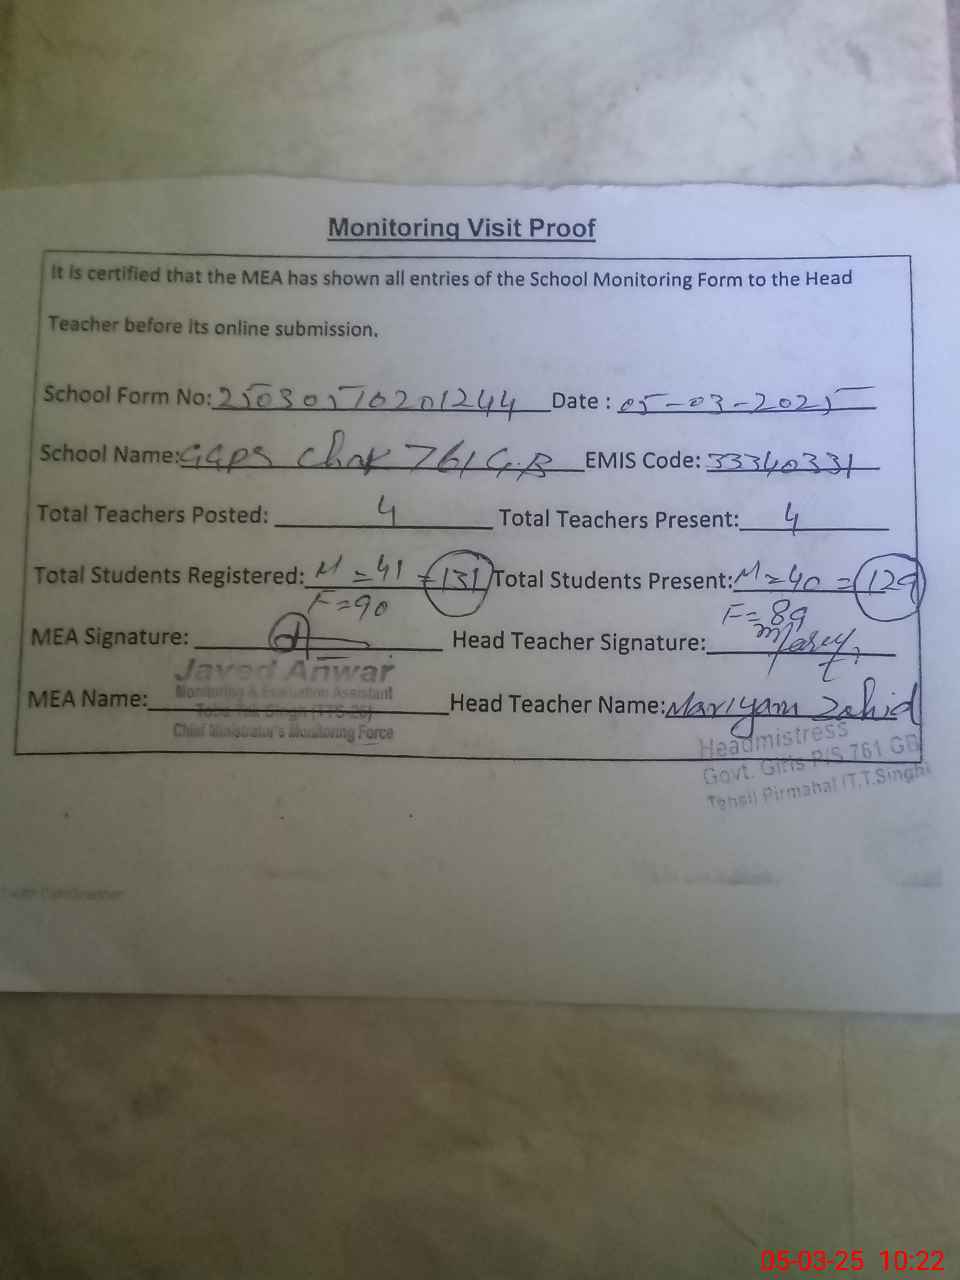 Monitoring Visit Proof
It is certified that the MEA has shown all entries of the School Monitoring Form to the Head
Teacher before its online submission.
School Form No: 25030510201244 Date : 05-03-2025
School Name: GGPS Chak 761 G.B EMIS Code: 33340331
Total Teachers Posted: 4 Total Teachers Present: 4
Total Students Registered: M=41 =131 Total Students Present: M=40 =129
F=90 F=89
MEA Signature: Head Teacher Signature:
Javed Anwar
Monitoring & Evaluation Assistant
MEA Name: Head Teacher Name: Mariyam Zahid
Toba Tek Singh (TTS-26)
Chief Minister's Monitoring Force
Headmistress
Govt. Girls P/S 761 GB
Tehsil Pirmahal (T.T.Singh)
05-03-25 10:22